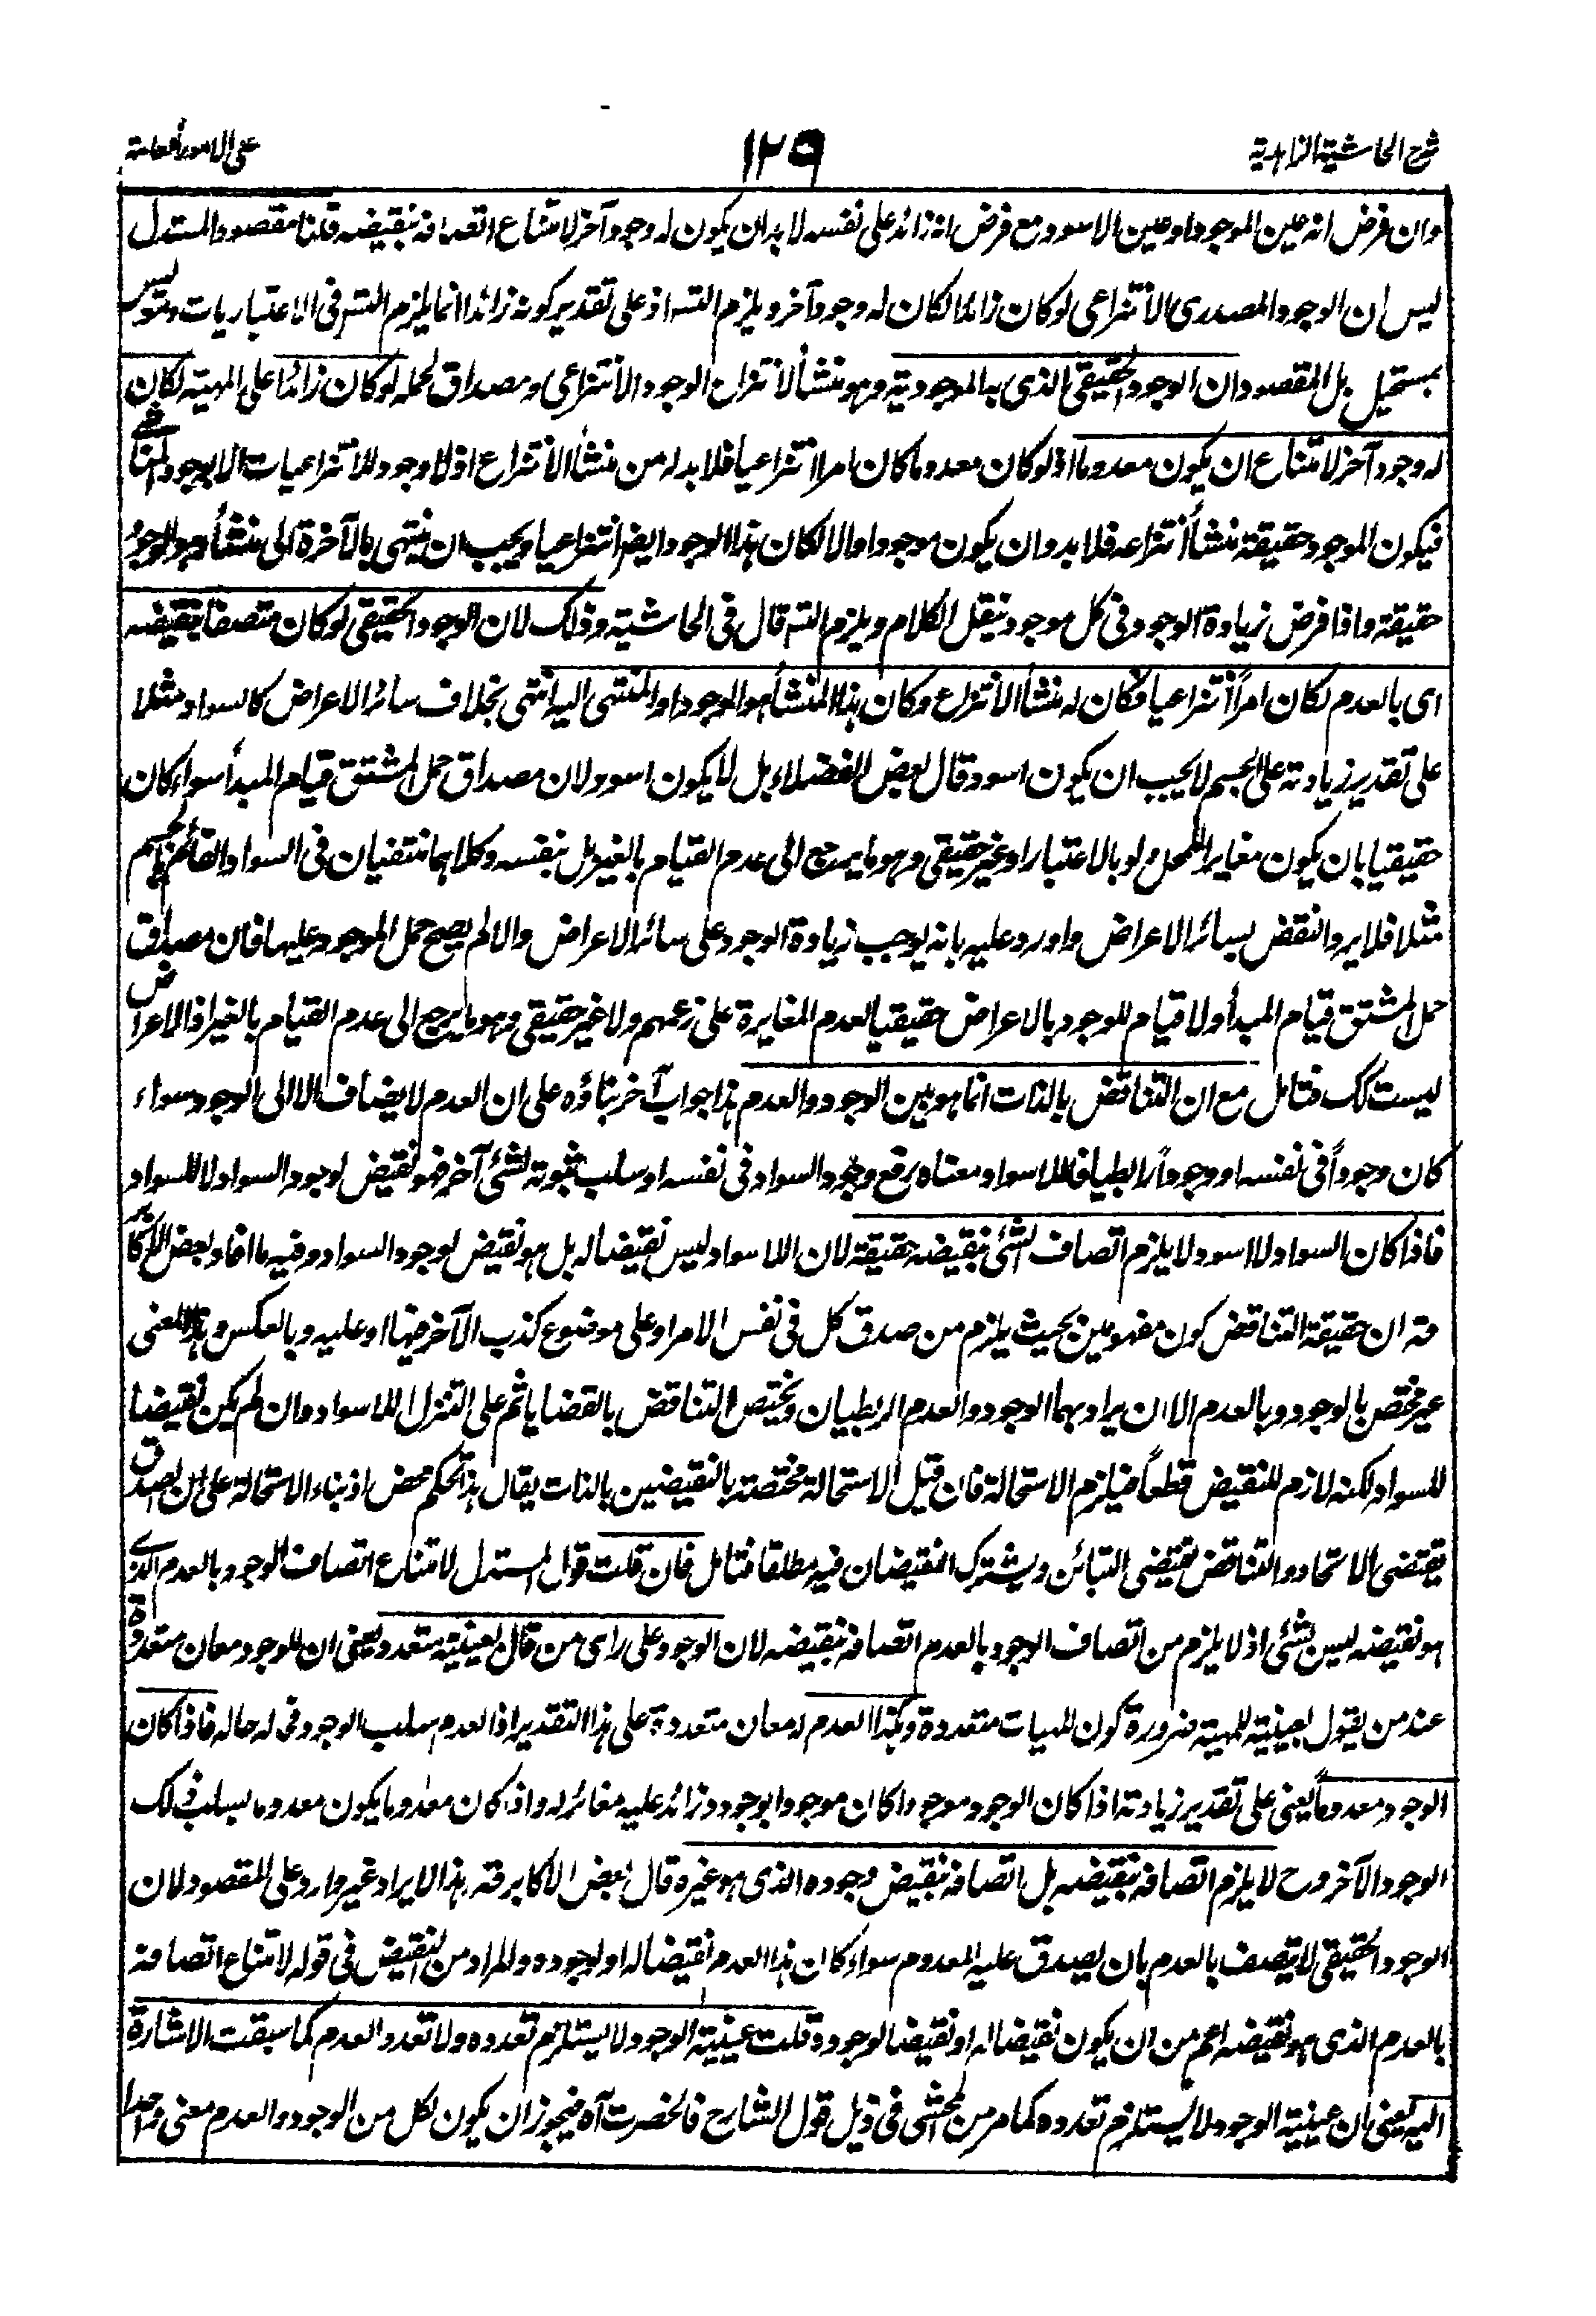 شرح الحاشية الزاهدية
١٢٩
على الامور العامة
وان فرض انه عين الموجود او عين الاسود مع فرض انه زائد على نفسه لا بد ان يكون له وجود آخر لامتناع اتصافه بنقيضه قلنا مقصود المستدل
ليس ان الوجود المصدرى الانتزاعى لو كان زائدا لكان له وجود آخر ويلزم التسـ اذ على تقدير كونه زائدا انما يلزم التسـ فى الاعتباريات وهو ليس
بمستحيل بل المقصود ان الوجود الحقيقى الذى به الموجودية وهو منشأ لانتزاع الوجود الانتزاعى ومصداق لحمله لو كان زائدا على المهية لكان
له وجود آخر لامتناع ان يكون معدوما اذ لو كان معدوما كان امرا انتزاعيا فلا بد له من منشأ الانتزاع اذ لا وجود للانتزاعيات الا بوجود المناشى
فيكون الموجود حقيقة منشأ انتزاعه فلا بد وان يكون موجودا والا لكان هذا الوجود ايضا انتزاعيا ويجب ان ينتهى بالآخرة الى منشأ هو الوجود
حقيقة واذا فرض زيادة الوجود فى كل موجود ينقل الكلام ويلزم التسـ قال فى الحاشية وذلك لان الوجود الحقيقى لو كان متصفا بنقيضه
اى بالعدم لكان امراً انتزاعيا فكان له منشأ الانتزاع وكان هذا المنشأ هو الموجود او المنتهى اليه انتهى بخلاف سائر الاعراض كالسواد مثلا
على تقدير زيادته على الجسم لا يجب ان يكون اسود وقال بعض الفضلاء بل لا يكون اسود لان مصداق حمل المشتق قيام المبدأ سواء كان
حقيقيا بان يكون مغايرا للمحل ولو بالاعتبار او غير حقيقى وهو ما يرجع الى عدم القيام بالغير بل بنفسه وكلاهما منتفيان فى السواد القائم بالجسم
مثلا فلا يرد النقض بسائر الاعراض واورد عليه بانه يوجب زيادة الوجود على سائر الاعراض والا لم يصح حمل الموجود عليها فان مصداق
حمل المشتق قيام المبدأ ولا قيام للوجود بالاعراض حقيقيا لعدم المغايرة على زعمهم ولا غير حقيقى وهو ما يرجع الى عدم القيام بالغير اذ الاعراض
ليست كك فتامل مع ان التناقض بالذات انما هو بين الوجود والعدم هذا جواب آخر بناؤه على ان العدم لا يضاف الا الى الوجود سواء
كان وجوداً فى نفسه او وجوداً رابطيا فاللاسواد معناه رفع وجود السواد فى نفسه او سلب ثبوته لشئ آخر فهو نقيض لوجود السواد لا للسواد
فاذا كان السواد لا اسود لا يلزم اتصاف الشئ بنقيضه حقيقة لان اللاسواد ليس نقيضا له بل هو نقيض لوجود السواد وفيه ما افاد بعض الاكابر
قه ان حقيقة التناقض كون مفهومين بحيث يلزم من صدق كل فى نفس الامر او على موضوع كذب الآخر فيها او عليه وبالعكس وهذا المعنى
غير مختص بالوجود وبالعدم الا ان يراد بهما الوجود والعدم الربطيان ويختص التناقض بالقضايا ثم على التنزل اللاسواد وان لم يكن نقيضا
للسواد لكنه لازم للنقيض قطعاً فيلزم الاستحالة فان قيل الاستحالة مختصة بالنقيضين بالذات يقال هذا تحكم محض اذ بناء الاستحالة على ان الصدق
يقتضى الاتحاد والتناقض يقتضى التبائن ويشترك النقيضان فيه مطلقا فتامل فان قلت قول المستدل لامتناع اتصاف الوجود بالعدم الذى
هو نقيضه ليس بشئ اذ لا يلزم من اتصاف الوجود بالعدم اتصافه بنقيضه لان الوجود على راى من قال بعينيته متعدد يعنى ان للوجود معان متعددة
عند من يقول بعينيته للمهية ضرورة كون المهيات متعددة وكذا العدم له معان متعددة على هذا التقدير اذ العدم سلب الوجود فى له حاله فاذا كان
الوجود معدوماً يعنى على تقدير زيادته اذا كان الوجود موجودا كان موجودا بوجود زائد عليه مغائر له واذا كان معدوما يكون معدوما بسلب ذلك
الوجود الآخر وح لا يلزم اتصافه بنقيضه بل اتصافه بنقيض وجوده الذى هو غيره قال بعض الاكابر قه هذا الايراد غير وارد على المقصود لان
الوجود الحقيقى لا يتصف بالعدم بان يصدق عليه المعدوم سواء كان هذا العدم نقيضا له او لوجوده والمراد من النقيض فى قوله لامتناع اتصافه
بالعدم الذى هو نقيضه اعم من ان يكون نقيضا له او نقيضا لوجوده قلت عينية الوجود لا يستلزم تعدده ولا تعدد العدم كما سبقت الاشارة
اليه يعنى بان عينية الوجود لا يستلزم تعدده كما مر من المحشى فى ذيل قول الشارح فانحصرت آه فيجوز ان يكون لكل من الوجود والعدم معنى واحدا